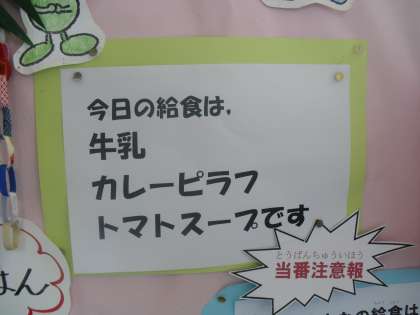 今日の給食は,
牛乳
カレーピラフ
トマトスープです
とうばんちゅういほう
当番注意報
はん
の給食は